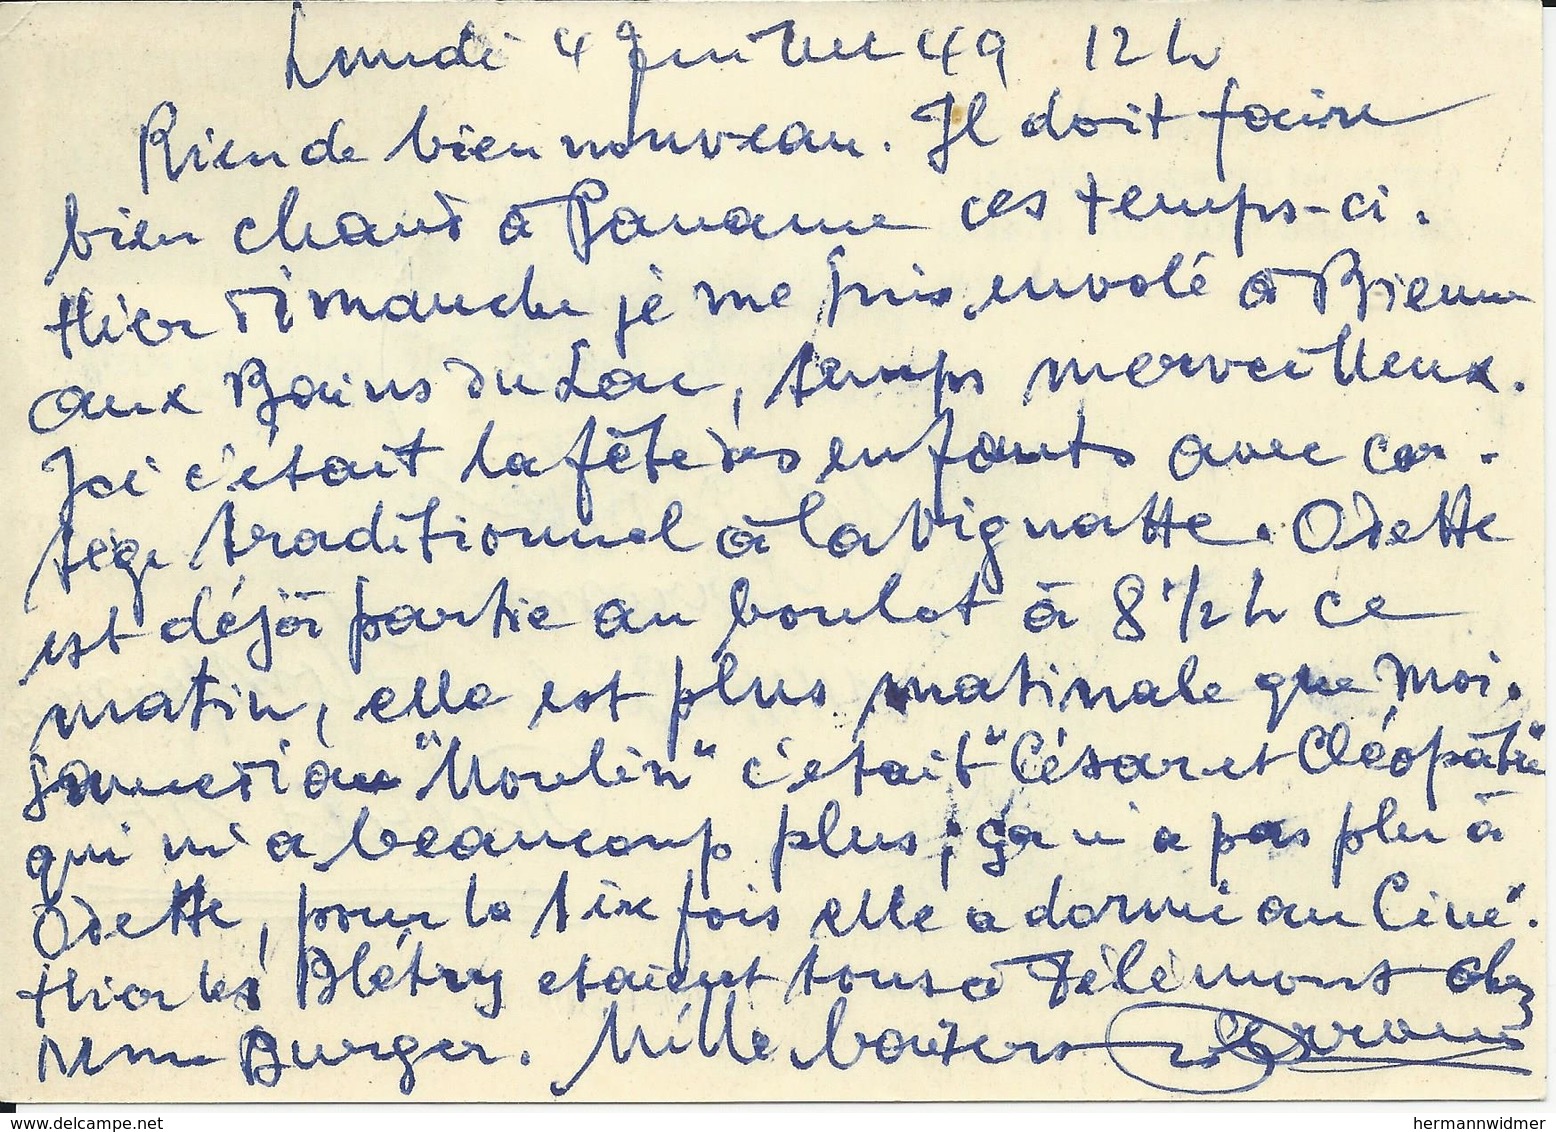 Lundi 4 juillet 49 12 h
Rien de bien nouveau. Il doit faire
bien chaud à Paname ces temps-ci.
Hier dimanche je me suis envolé à Bienne
aux Bains du Lac, temps merveilleux.
Ici c'était la fête des enfants avec cor-
tège traditionnel à la Vignatte. Odette
est déjà partie au boulot à 8 1/2 h ce
matin, elle est plus matinale que moi.
Samedi au "Moulin" c'était "César et Cléopâtre"
qui m'a beaucoup plus; ça n'a pas plu à
Odette, pour la 1ix fois elle a dormi au Ciné.
Hier les Blétry etaient tous à Délémont chez
Mme Burger. Mille baisers
hermannwidmer - delcampe.net